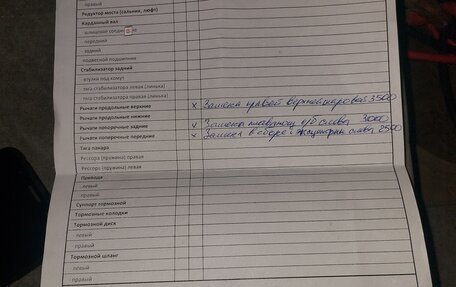 правый
Редуктор моста (сальник, люфт)
Карданный вал
шлицевое соединение
передний
задний
подвесной подшипник
Стабилизатор задний
втулки под хомут
тяга стабилизатора левая (линька)
тяга стабилизатора правая (линька)
Рычаги продольные верхние х Замена правой верхней шаровой 3500
Рычаги продольные нижние
Рычаги поперечные задние х Замена плавающ с/б слева 3000
Рычаги поперечные передние х Замена в сборе слева 2500
Тяга панара
Рессора (пружина) правая
Рессора (пружина) левая
Привода
левый
правый
Суппорт тормозной
Тормозные колодки
Тормозной диск
- левый
- правый
Тормозной шланг
- левый
- правый